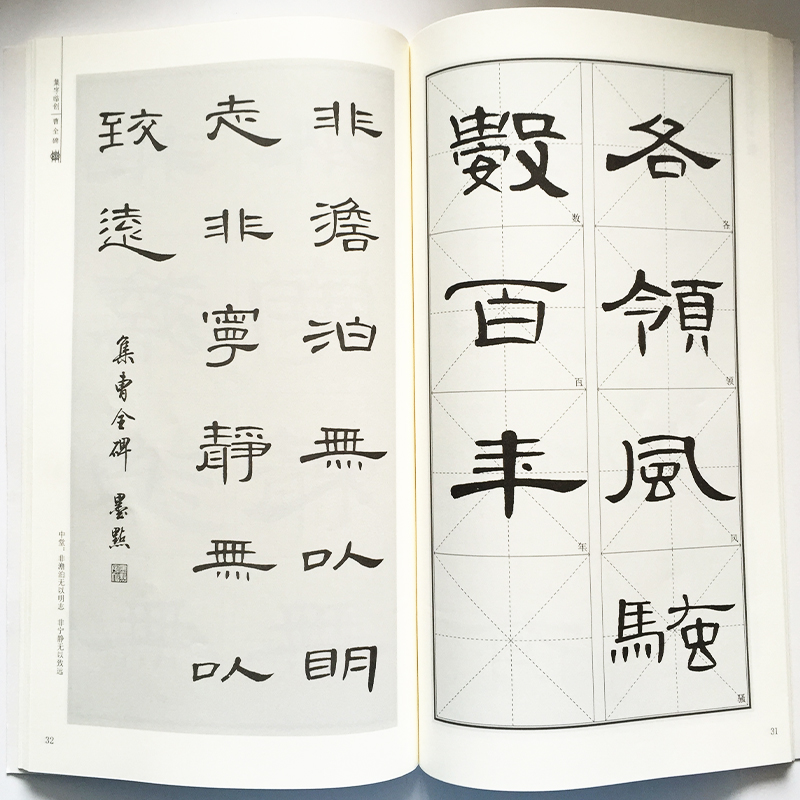 各領風騷
各领风骚
數百年
数百年
31
集字临创
曹全碑
非澹泊無以明
志非寧靜無以
致遠
集曹全碑 墨點
中堂：非澹泊无以明志 非宁静无以致远
32